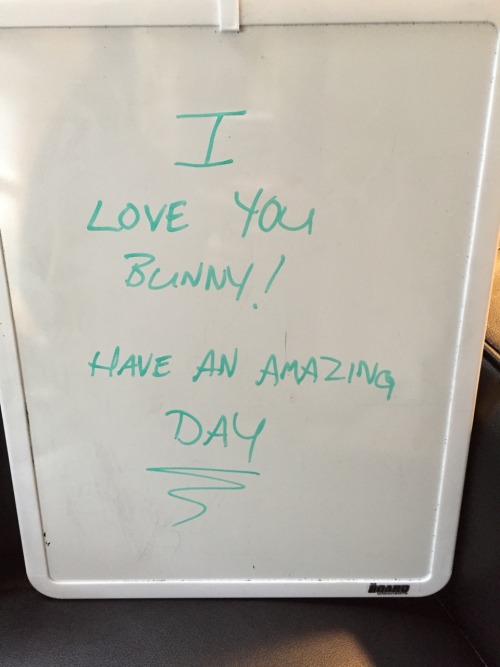 I
LOVE YOU
BUNNY!
HAVE AN AMAZING
DAY
BOARD